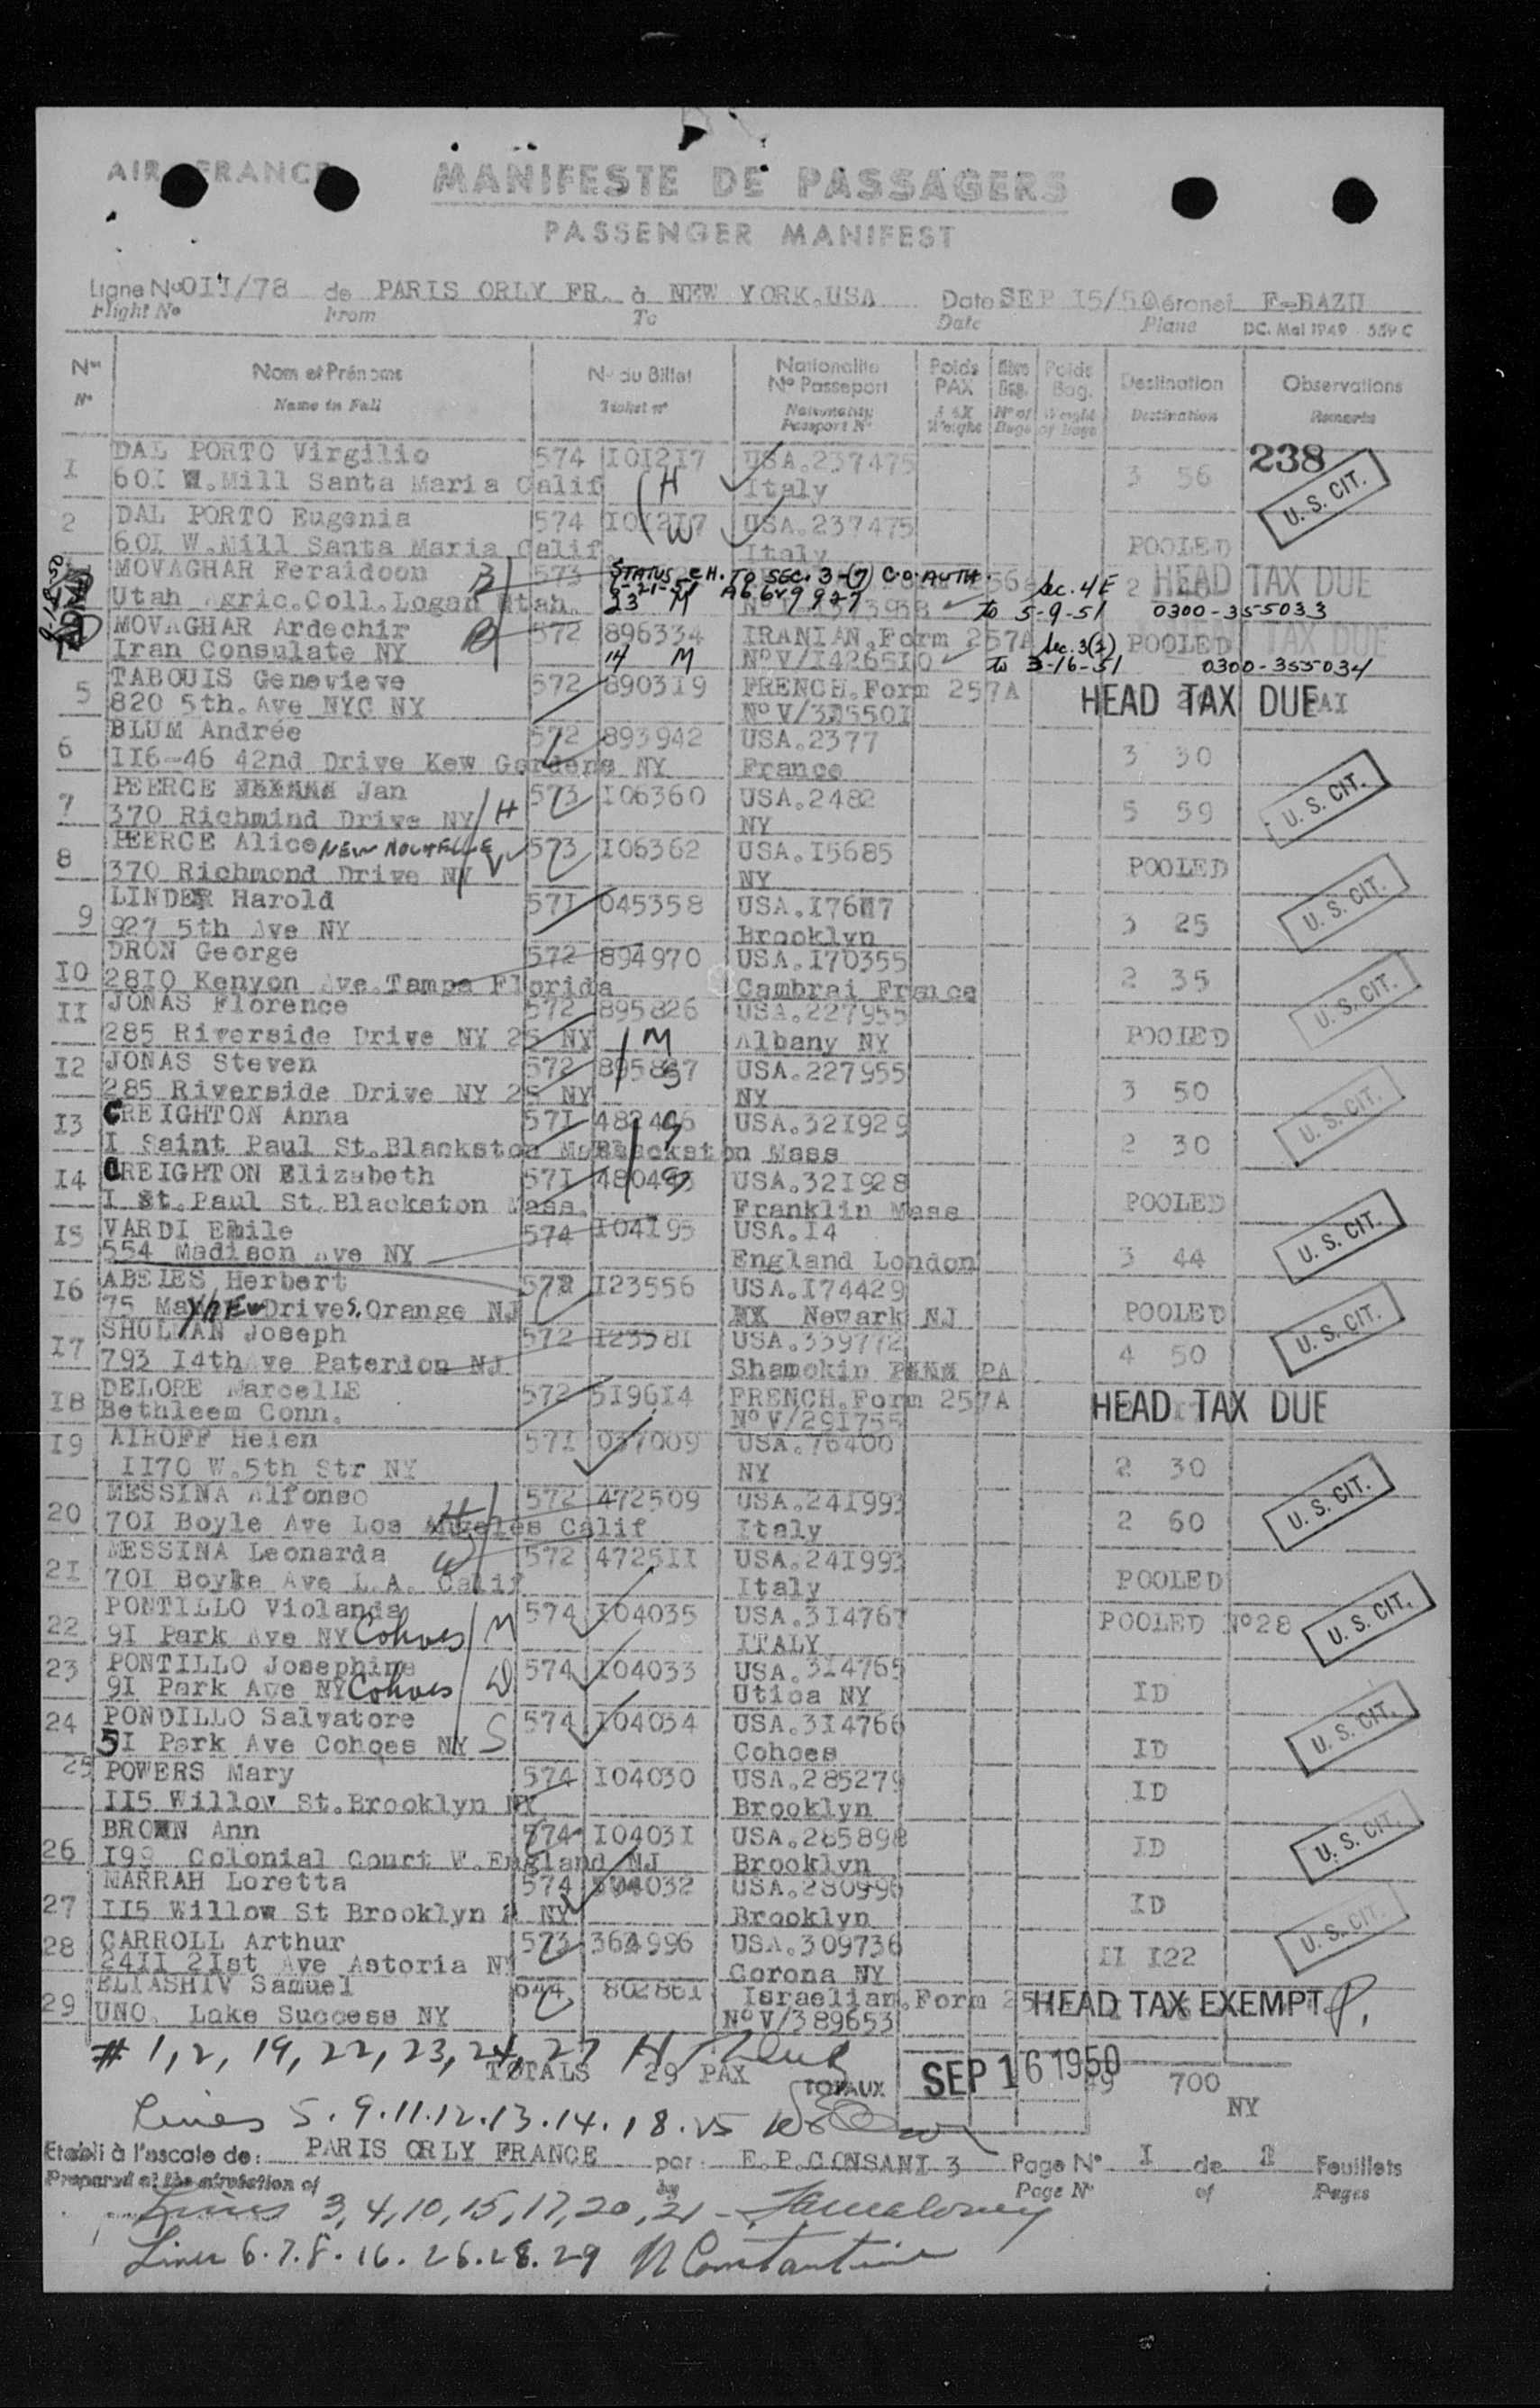 AIR FRANCE
MANIFESTE DE PASSAGERS
PASSENGER MANIFEST
Ligne No OII/78 de PARIS ORLY FR. à NEW YORK.USA Date SEP I5/50 Aéronef F-BAZU
Flight No From To Date Plane DC. Mai 1949 559 C
Nos Nom et Prénoms No du Billet Nationalité No Passeport Poids PAX Nbre Bag. Poids Bag. Destination Observations
No Name in Full Ticket no Nationality Passport No PAX Weight No of Bags Weight of Bags Destination Remarks
238
I DAL PORTO Virgilio 574 IOI2I7 USA.237475 3 56 U. S. CIT.
60I W.Mill Santa Maria Calif H Italy
2 DAL PORTO Eugenia 574 IOI2I7 USA.237475 POOLED
60I W.Mill Santa Maria Calif. W Italy
MOVAGHAR Feraidoon 573 STATUS CH. TO SEC. 3-(7) C.O. AUTH. Sec. 4E 2 HEAD TAX DUE
Utah Agric.Coll.Logan Utah. 23 M A6649927 to 5-9-51 0300-355033
MOVAGHAR Ardechir 572 896334 IRANIAN.Form 257A Sec.3(2) POOLED HEAD TAX DUE
Iran Consulate NY 14 M No V/I4265IO to 3-16-51 0300-355034
5 TABOUIS Genevieve 572 8903I9 FRENCH.Form 257A HEAD TAX DUE
820 5th.Ave NYC NY No V/3I550I
6 BLUM Andrée 572 893942 USA.2377 3 30
II6-46 42nd Drive Kew Gardens NY France
7 PEERCE Jan 573 I06360 USA.2482 5 59 U. S. CIT.
370 Richmind Drive NY H NY
8 PEERCE Alice NEW ROCHELLE W 573 I06362 USA.I5685 POOLED
370 Richmond Drive NY NY
9 LINDER Harold 57I 045358 USA.I76I7 3 25 U. S. CIT.
927 5th Ave NY Brooklyn
IO DRON George 572 894970 USA.I70355 2 35 U. S. CIT.
28IO Kenyon Ave.Tampa Florida Cambrai France
II JONAS Florence 572 895826 USA.227955 POOLED
285 Riverside Drive NY 25 NY M Albany NY
I2 JONAS Steven 572 895827 USA.227955 3 50 U. S. CIT.
285 Riverside Drive NY 25 NY S NY
I3 CREIGHTON Anna 57I USA.32I929 2 30
I Saint Paul St.Blackston Blackston Mass
I4 CREIGHTON Elizabeth 57I USA.32I928 POOLED
I St.Paul St.Blackston Mass. Franklin Mass
I5 VARDI Emile 574 I04I95 USA.I4 3 44 U. S. CIT.
554 Madison Ave NY England London
I6 ABELES Herbert 572 I23556 USA.I74429 POOLED
75 Mayhew Drive S.Orange NJ Newark NJ
I7 SHULMAN Joseph 572 I2358I USA.339772 4 50 U. S. CIT.
793 I4th Ave Paterdon NJ Shamokin PA
I8 DELORE MarcelIE 572 5I96I4 FRENCH.Form 257A HEAD TAX DUE
Bethleem Conn. No V/29I755
I9 AIROFF Helen 57I 037009 USA.76400 2 30
II70 W.5th Str NY NY
20 MESSINA Alfonso H 572 472509 USA.24I993 2 60 U. S. CIT.
70I Boyle Ave Los Angeles Calif Italy
2I MESSINA Leonarda W 572 4725II USA.24I993 POOLED
70I Boyke Ave L.A. Calif Italy
22 PONTILLO Violanda 574 I04035 USA.3I4767 POOLED No28 U. S. CIT.
9I Park Ave NY Cohoes M ITALY
23 PONTILLO Josephine 574 I04033 USA.3I4765 ID
9I Park Ave NY Cohoes D Utica NY
24 PONDILLO Salvatore 574 I04034 USA.3I4766 ID U. S. CIT.
5I Park Ave Cohoes NY S Cohoes
25 POWERS Mary 574 I04030 USA.285279 ID
II5 Willow St.Brooklyn NY Brooklyn
26 BROWN Ann 574 I0403I USA.285898 ID U. S. CIT.
Colonial Court W.England NJ Brooklyn
27 MARRAH Loretta 574 I04032 USA.280996 ID
II5 Willow St Brooklyn NY Brooklyn
28 CARROLL Arthur 573 USA.309736 II I22 U. S. CIT.
24II 2Ist Ave Astoria NY Corona NY
29 ELIASHIV Samuel 802861 Israelian.Form HEAD TAX EXEMPT P.
UNO. Lake Success NY No V/389653
# 1, 2, 19, 22, 23, 24, 27
TOTALS 29 PAX TOTAUX SEP 16 1950 700
NY
Lines 5.9.11.12.13.14.18.25
Etabli à l'escale de: PARIS ORLY FRANCE par: E.P.CONSANI 3 Page No I de Feuillets
Prepared at the airstation of by Page No of Pages
Lines 3,4,10,15,17,20,21 - Jamaloney
Lines 6.7.8.16.26.28.29 N Constantine